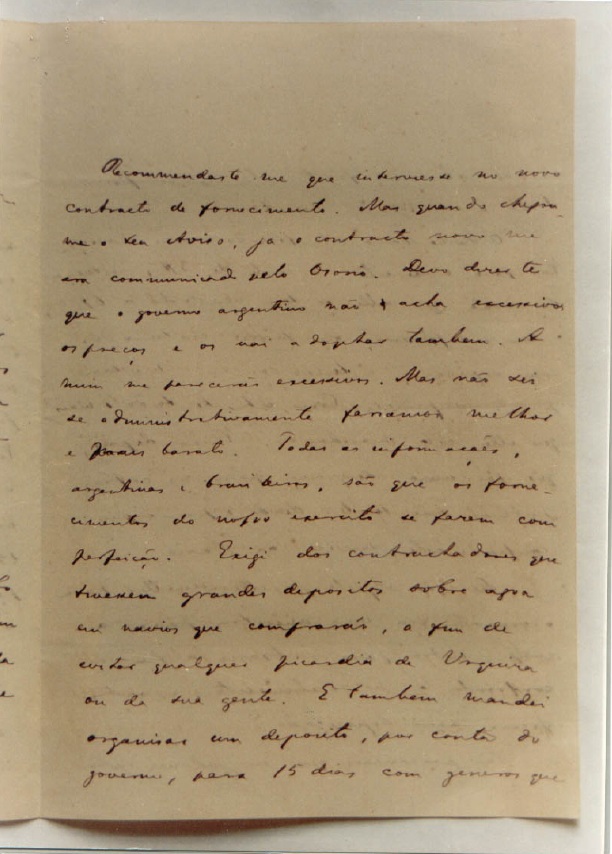 Recommendaste me que interviesse no novo
contracto de fornecimento. Mas quando chegou
me o seu Aviso, já o contracto novo me
era communicado pelo Osorio. Devo dizer te
que o governo argentino não acha excessivos
os preços e os vai adoptar tambem. A
mim me parecerão excessivos. Mas não sei
se administrativamente fariamos melhor
e mais barato. Todas as informações,
argentinas e brasileiras, são que os forne-
cimentos do nosso exercito se fazem com
perfeição. Exigi dos contractadores que
tivessem grandes depositos sobre agua
em navios que comprarão, a fim de
evitar qualquer picardia de Urquiza
ou de sua gente. E tambem mandei
organisar um deposito, por conta do
governo, para 15 dias com generos que